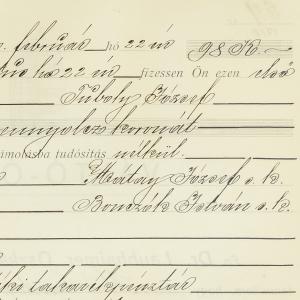 február hó 22 én 98 K.
hó 22 én fizessen Ön ezen első
Tuboly József
koronát
számolásba tudósítás nélkül.
Mátay József s. k.
Bonczók István s. k.
takarékpénztár